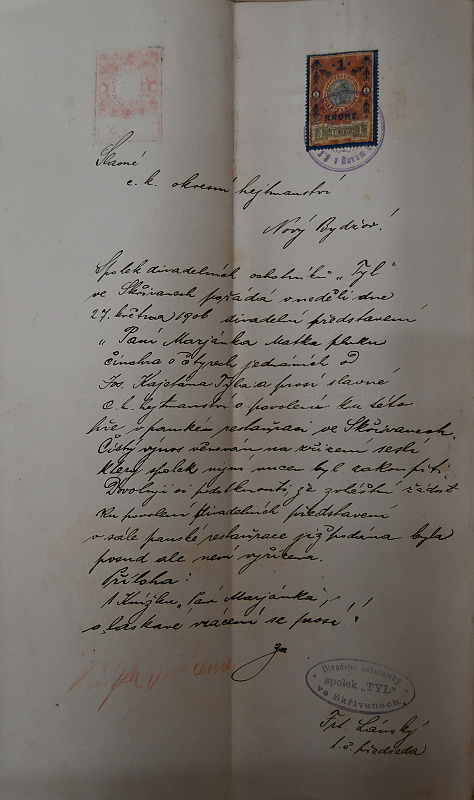 1
KRONE
1 1898 1
Slavné
c. k. okresní hejtmanství
Nový Bydžov!
Spolek divadelních ochotníků „Tyl“
ve Skřivanech pořádá v neděli dne
27. května 1906 divadelní představení
„Paní Marjánka Matka pluku
činohra o čtyrech jednáních od
Jos. Kajetána Tyla a prosí slavné
c. k. hejtmanství o povolení ku této
hře v panské restauraci ve Skřivanech.
Čistý výnos věnován na křízení
který spolek nucen byl zakoupiti.
Dovoluji si podotknouti, že zvláštní žádost
ku povolení divadelních představení
v sále panské restaurace již podána byla
posud ale není vyřízena.
Příloha:
1 Knížka „Paní Marjánka“,
o laskavé vrácení se prosí!
za
Divadelní ochotnický
spolek „TYL“
ve Skřivanech.
Frt. Lánský
t. č. předseda